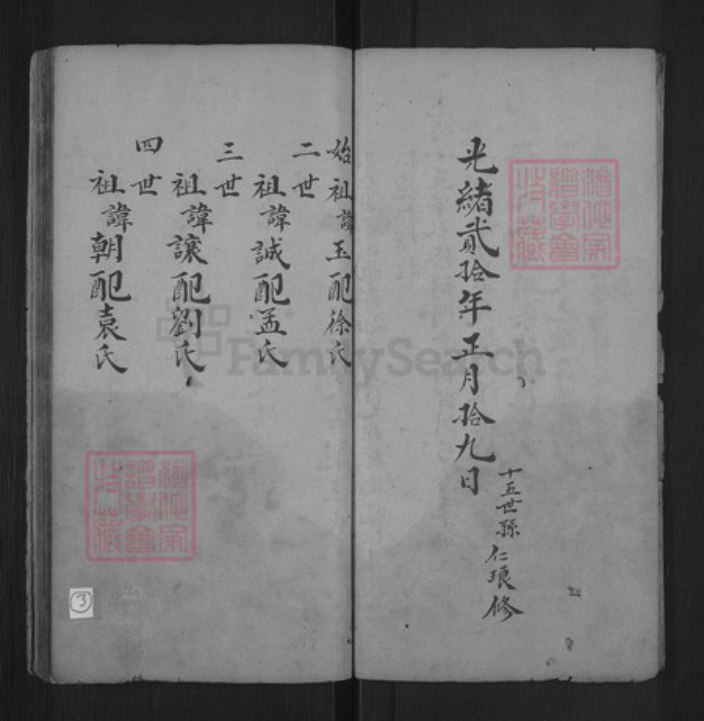 光緒貳拾年正月拾九日
十五世孫仁琅修
始祖諱玉配徐氏
二世
祖諱誠配孟氏
三世
祖諱讓配劉氏
四世
祖諱朝配袁氏
猶他家譜學會攷藏
猶他家譜學會攷藏
3
FamilySearch